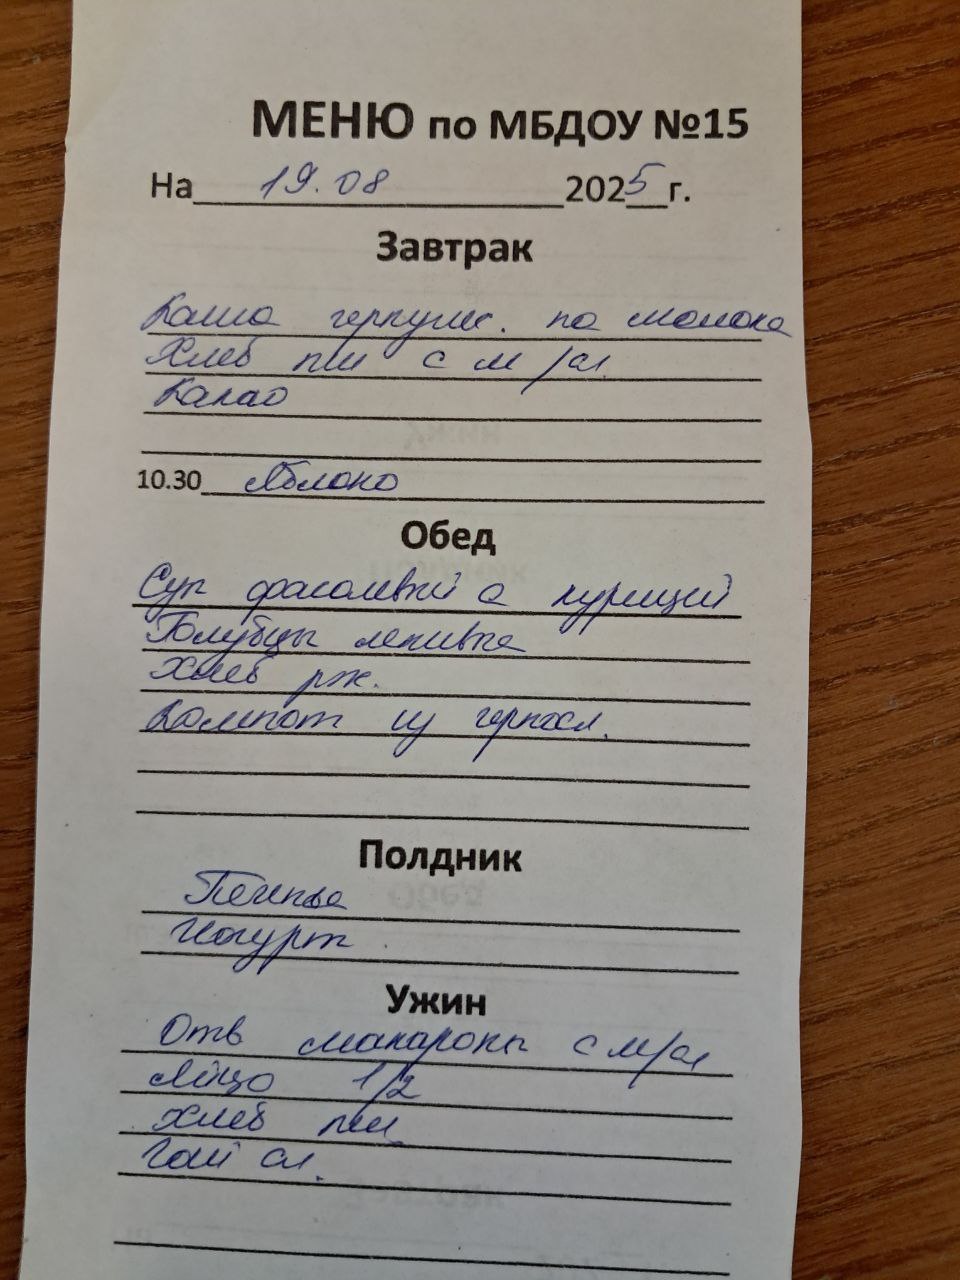 МЕНЮ по МБДОУ №15
На 19.08 2025 г.
Завтрак
Каша геркулес. на молоке
Хлеб пш с м/сл.
Какао
10.30 Яблоко
Обед
Суп фасолевый с курицей
Голубцы ленивые
Хлеб рж.
Компот из черносл.
Полдник
Печенье
Йогурт
Ужин
Отв макароны с м/сл
Яйцо 1/2
Хлеб пш
Чай сл.